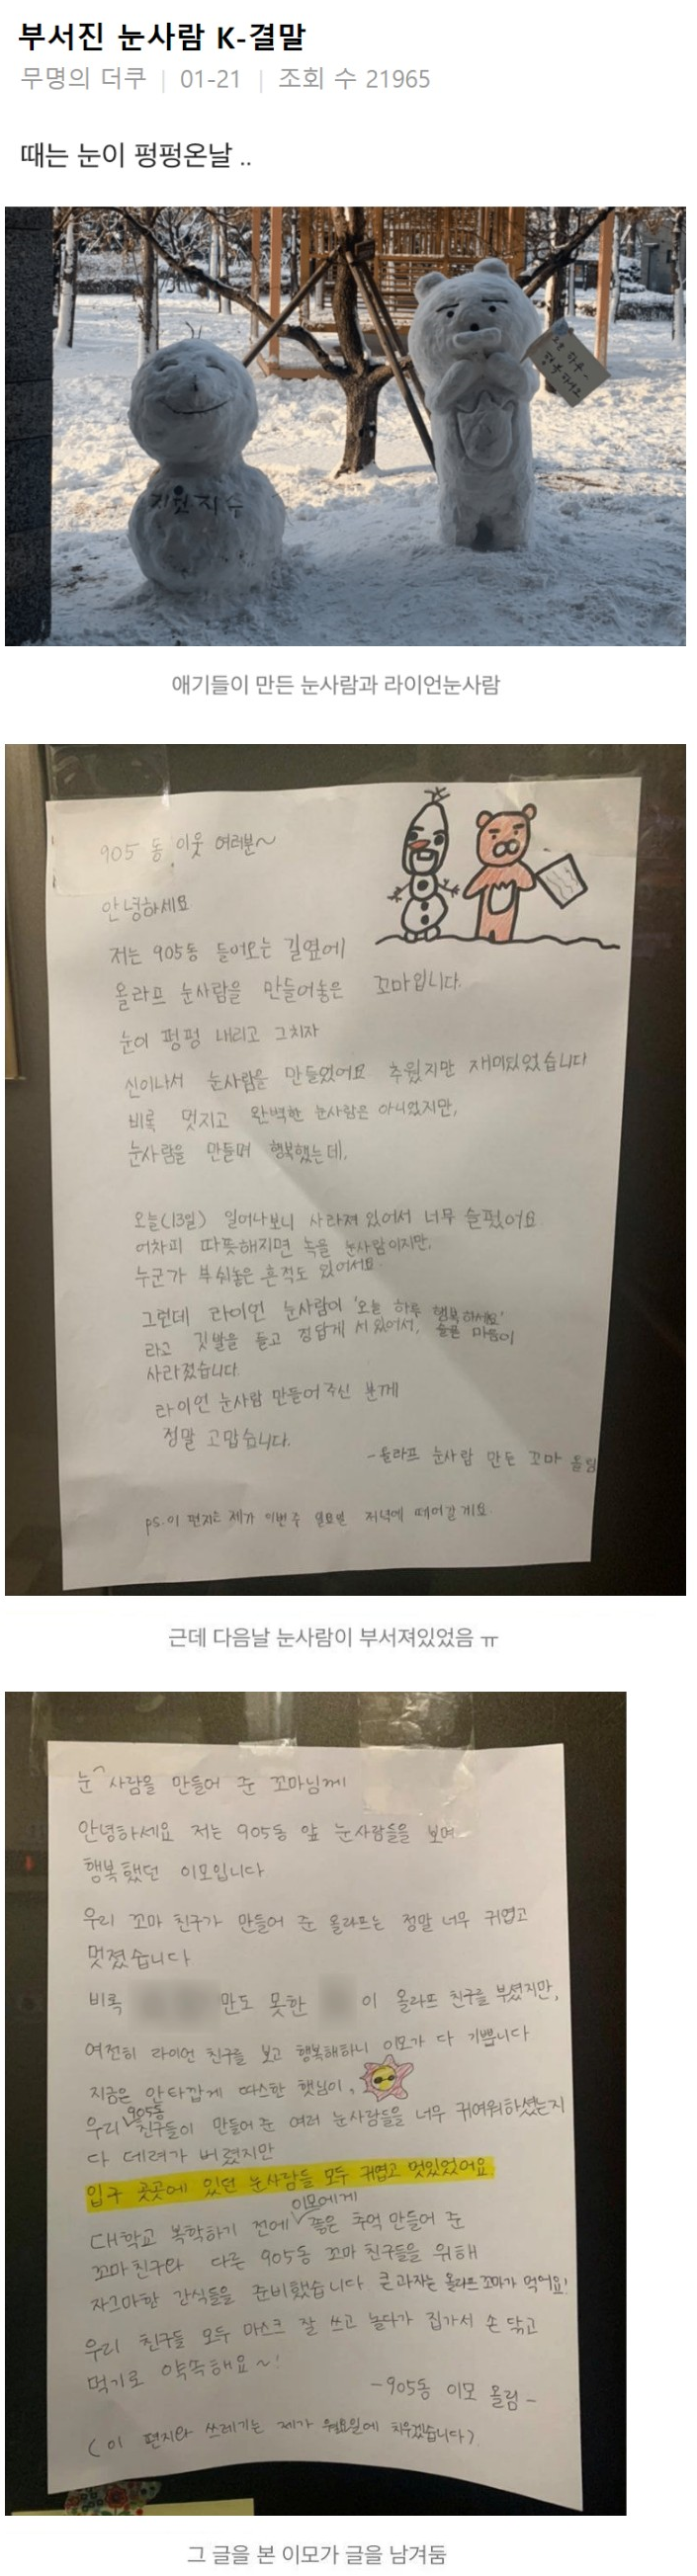 부서진 눈사람 K-결말
무명의 더쿠 | 01-21 | 조회 수 21965
때는 눈이 펑펑온날 ..
지원지수
오늘 하루~
행복하세요
애기들이 만든 눈사람과 라이언눈사람
905동 이웃 여러분~
안녕하세요
저는 905동 들어오는 길옆에
올라프 눈사람을 만들어놓은 꼬마입니다.
눈이 펑펑 내리고 그치자
신이나서 눈사람을 만들었어요 추웠지만 재미있었습니다
비록 멋지고 완벽한 눈사람은 아니었지만,
눈사람을 만들며 행복했는데,
오늘(13일) 일어나보니 사라져 있어서 너무 슬펐어요
어차피 따뜻해지면 녹을 눈사람이지만,
누군가 부숴놓은 흔적도 있어서요.
그런데 라이언 눈사람이 '오늘 하루 행복하세요'
라고 깃발을 들고 정답게 서있어서, 슬픈 마음이
사라졌습니다.
라이언 눈사람 만들어 주신 분께
정말 고맙습니다.
-올라프 눈사람 만든 꼬마 올림
ps.이 편지는 제가 이번주 일요일 저녁에 떼어갈게요.
근데 다음날 눈사람이 부서져있었음 ㅠ
눈^사람을 만들어 준 꼬마님께
안녕하세요 저는 905동 앞 눈사람들을 보며
행복했던 이모입니다
우리 꼬마 친구가 만들어 준 올라프는 정말 너무 귀엽고
멋졌습니다
비록 만도 못한 이 올라프 친구를 부셨지만,
여전히 라이언 친구를 보고 행복해하니 이모가 다 기쁩니다
지금은 안타깝게 따스한 햇님이,
우리 905동 친구들이 만들어 준 여러 눈사람들을 너무 귀여워하셨는지
다 데려가 버렸지만
입구 곳곳에 있던 눈사람들 모두 귀엽고 멋있었어요
대학교 복학하기 전에 이모에게 좋은 추억 만들어 준
꼬마친구와 다른 905동 꼬마 친구들을 위해
자그마한 간식들을 준비했습니다 큰과자는 올라프꼬마가 먹어요!
우리 친구들 모두 마스크 잘 쓰고 놀다가 집가서 손 닦고
먹기로 약속해요~!
-905동 이모 올림-
(이 편지와 쓰레기는 제가 월요일에 치우겠습니다)
그 글을 본 이모가 글을 남겨둠